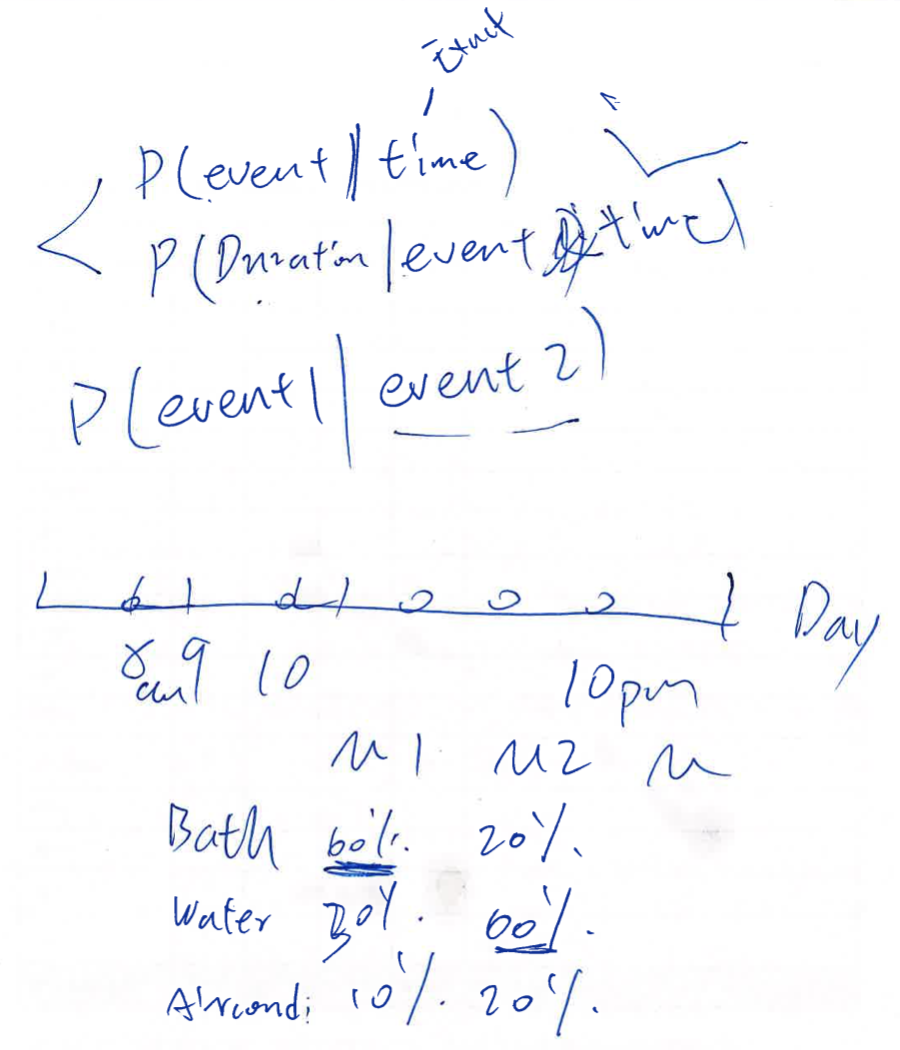 Exact
P(event | time)
P(Duration | event, time)
P(event1 | event 2)
Day
8am 9 10 10pm
M1 M2 M
Bath 60% 20%
Water 30% 60%
Aircondi 10% 20%